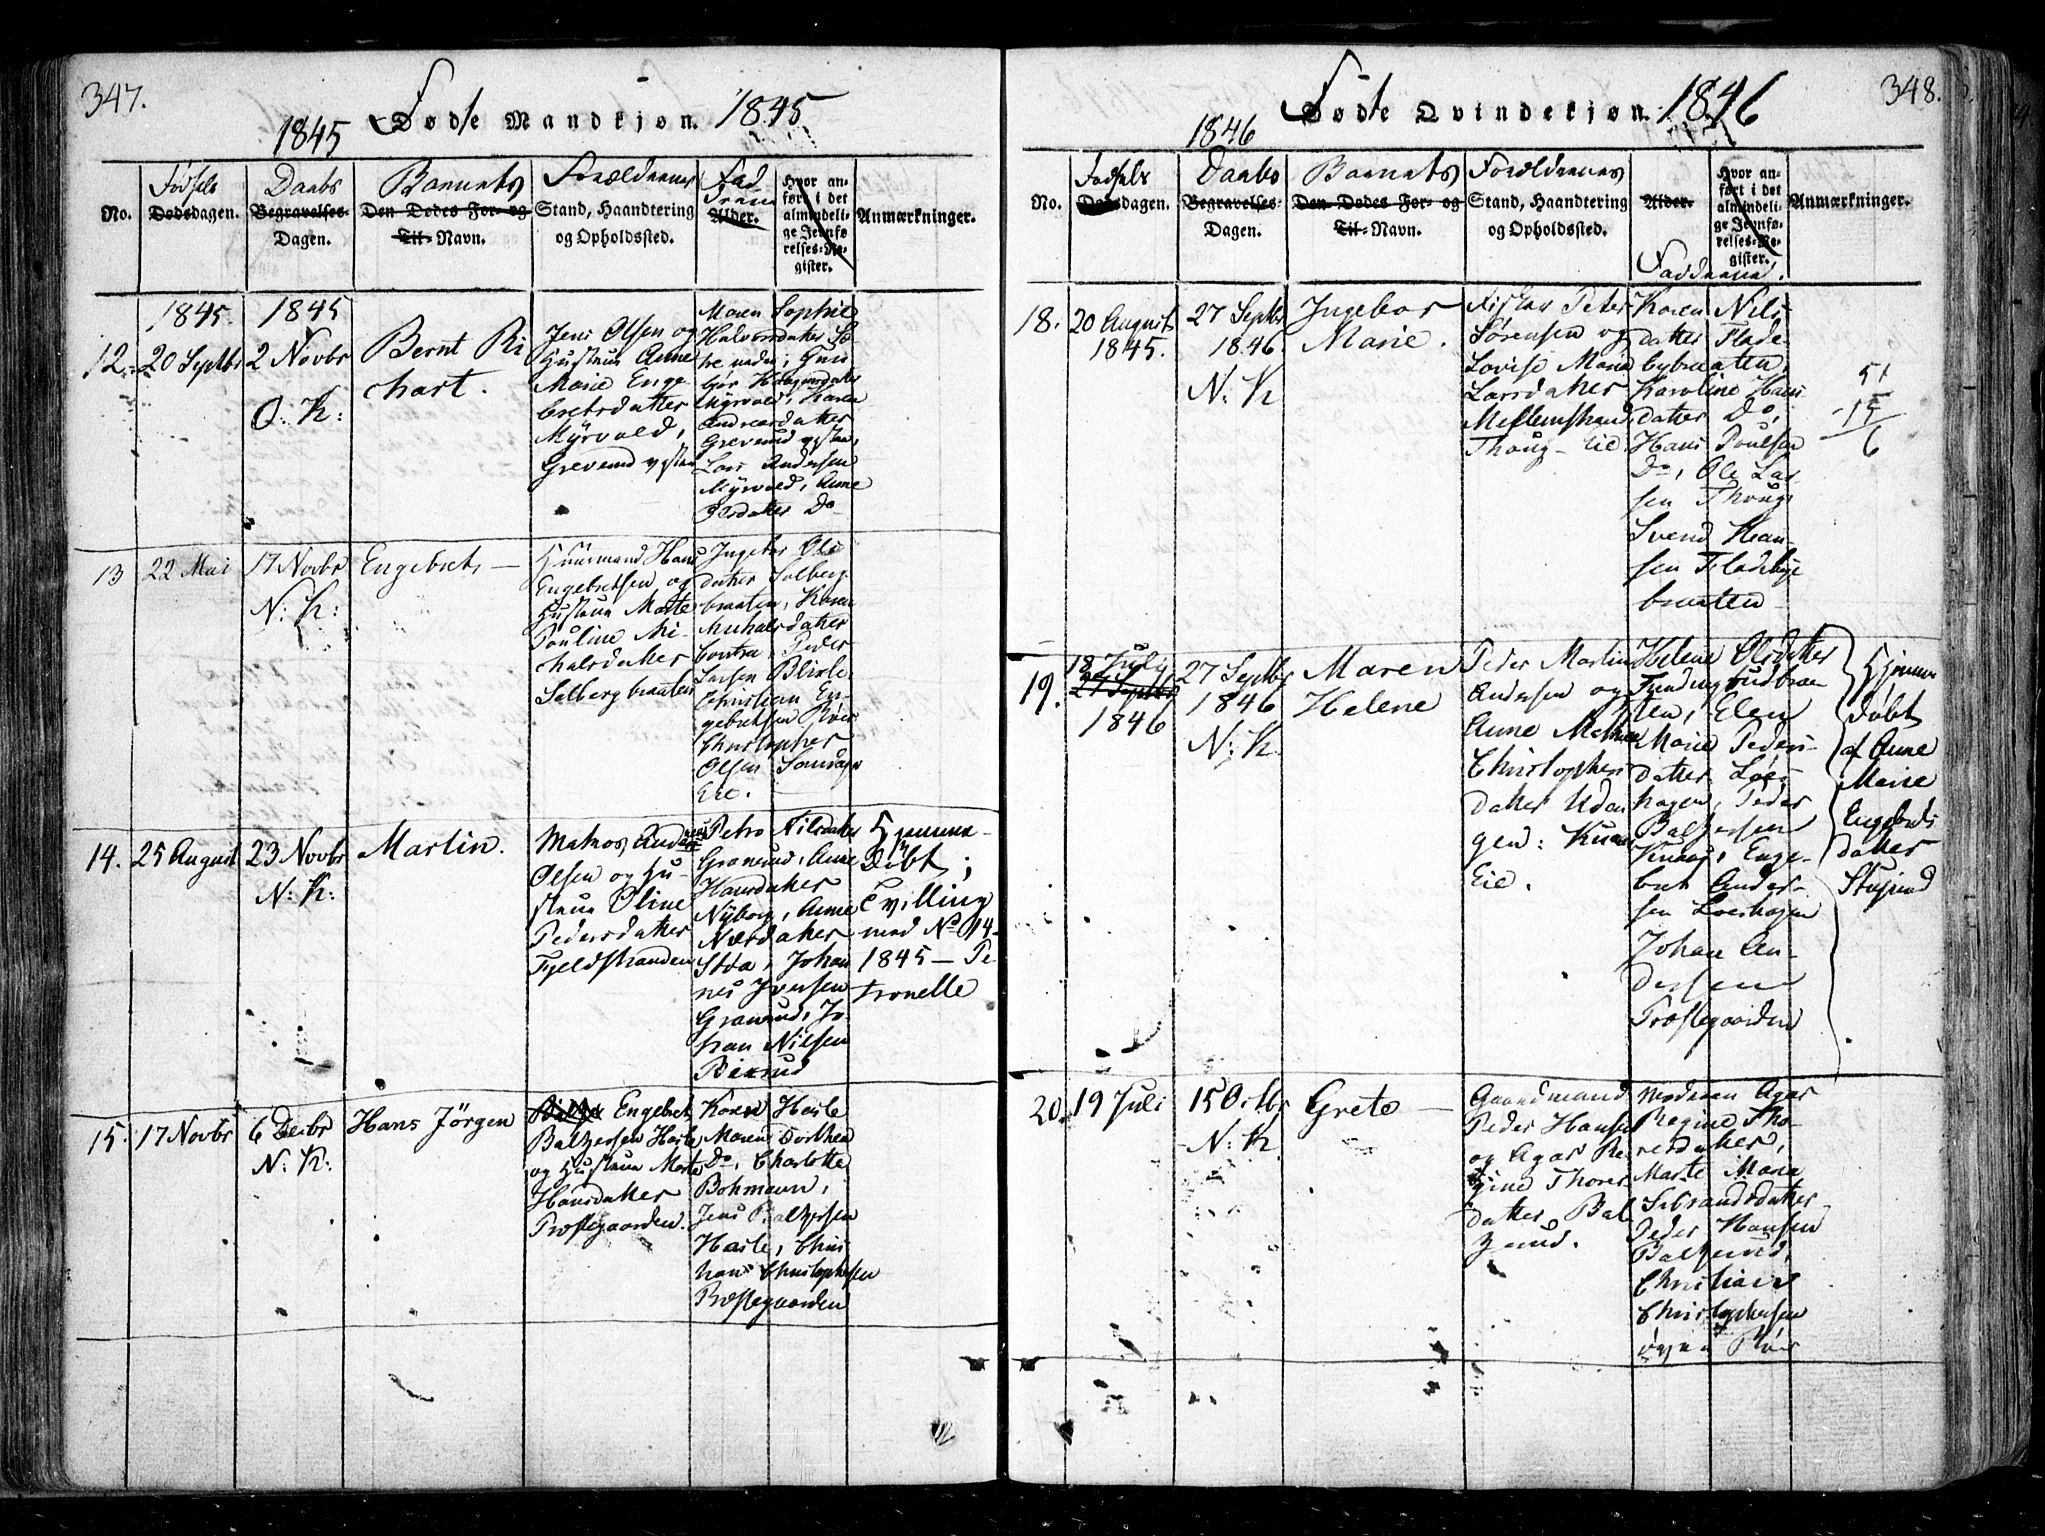 347.
Føde Mandkjøn. 1845
1845
No.
Fødsels
Dødsdagen.
Daabs
Begravelses-
Dagen.
Barnets
Den Dødes For- og
Til-Navn.
Forældrenes
Stand, Haandtering
og Opholdssted.
Fad
drene
Alder.
Hvor an-
ført i det
almindeli-
ge Jevnfø-
relses-Re-
gister.
Anmærkninger.
12.
1845.
20 Septbr
1845
2 Novbr
O: K:
Bernt Ri
chart.
Jens Olsen og
Hustrue Anne
Marie Enge
bretsdatter
Myrvold,
Greverud
Maren Sophie
Halvorsdatter
Myrvold, Karen
Andreasdatter
Greverud
Lars Andersen
Myrvold, Anne
Do
13
22 Mai
17 Novbr
N: K:
Engebret,
Huusmand Hans
Engebretsen og
Hustrue Marte
Pouline Mi-
chalsdatter
Solbergbraaten
Ingebor Ols
datter Solberg
braaten, Karen
Michalsdatter
Peder
Larsen
Christian En-
gebretsen Røer
Christopher
Olsen
Eie.
14.
25 August
23 Novbr
N: K:
Martin.
Matros Anders
Olsen og Hu-
strue Oline
Pedersdatter
Fjeldstranden
Petro Nilsdatter
Granerud, Anne
Hansdatter
Nyborg, Anne
Stoa, Johan
nes Iversen
Granerud, Jo
han Nilsen
Hjemme-
døbt;
Tvilling
med No 14
1845 — Pe
tronelle
15.
17 Novbr
6 Decbr
N: K:
Hans Jörgen
Engebret
Baltzersen Hasle
og Hustrue Marte
Hansdatter
Præstegaarden.
Karen Hasle
Maren Dorthea
Do, Charlotte
Bohmann,
Jens Baltzersen
Hasle, Chris
tian Christophersen
Præstegaarden
348.
Føde Qvindekjøn. 1846
1846
No.
Fødsels
Dødsdagen.
Daabs
Begravelses-
Dagen.
Barnets
Den Dødes For- og
Til-Navn.
Forældrenes
Stand, Haandtering
og Opholdssted.
Alder.
Faddrene.
Hvor an-
ført i det
almindeli-
ge Jevnfø-
relses-Re-
gister.
Anmærkninger.
18.
20 August
1845.
27 Septbr
1846.
N: K
Ingebor
Marie.
Peter
Sørensen og
Lovise Marie
Larsdatter
Mellemstrand
Thoug - Eie
Karen Nils
datter Flade
bybraaten,
Karoline Hans
datter Do,
Hans Poulsen
Do, Ole Lar
sen Thoug
Svend Han-
sen Fladebye
braaten
51
15
6
19.
18 July
27 Septbr
1846
27 Septbr
1846
N: K.
Maren
Helene
Peder Martin
Andersen og
Anne Mathea
Christophers
datter
gen: Knar
Eie.
Helene Olsdatter
ten, Elen
Marie Peders-
datter Loes
hagen, Peder
Baltzersen
Knar, Enge-
bret Ander-
sen Loeshagen
Johan An-
dersen
Præstegaarden
Hjemme
døbt
af Anne
Marie
Engebrets
datter
20.
19 Juli
15 Octbr
N: K
Grete
Gaardmand
Peder Hansen
og Agas Re
gine Thores
datter Bal
zerud.
Moderen Agas
Regine Tho-
resdatter,
Marte Maria
Sebrandsdatter
Peder Hansen
Balzerud,
Christian
Christophersen
Røer